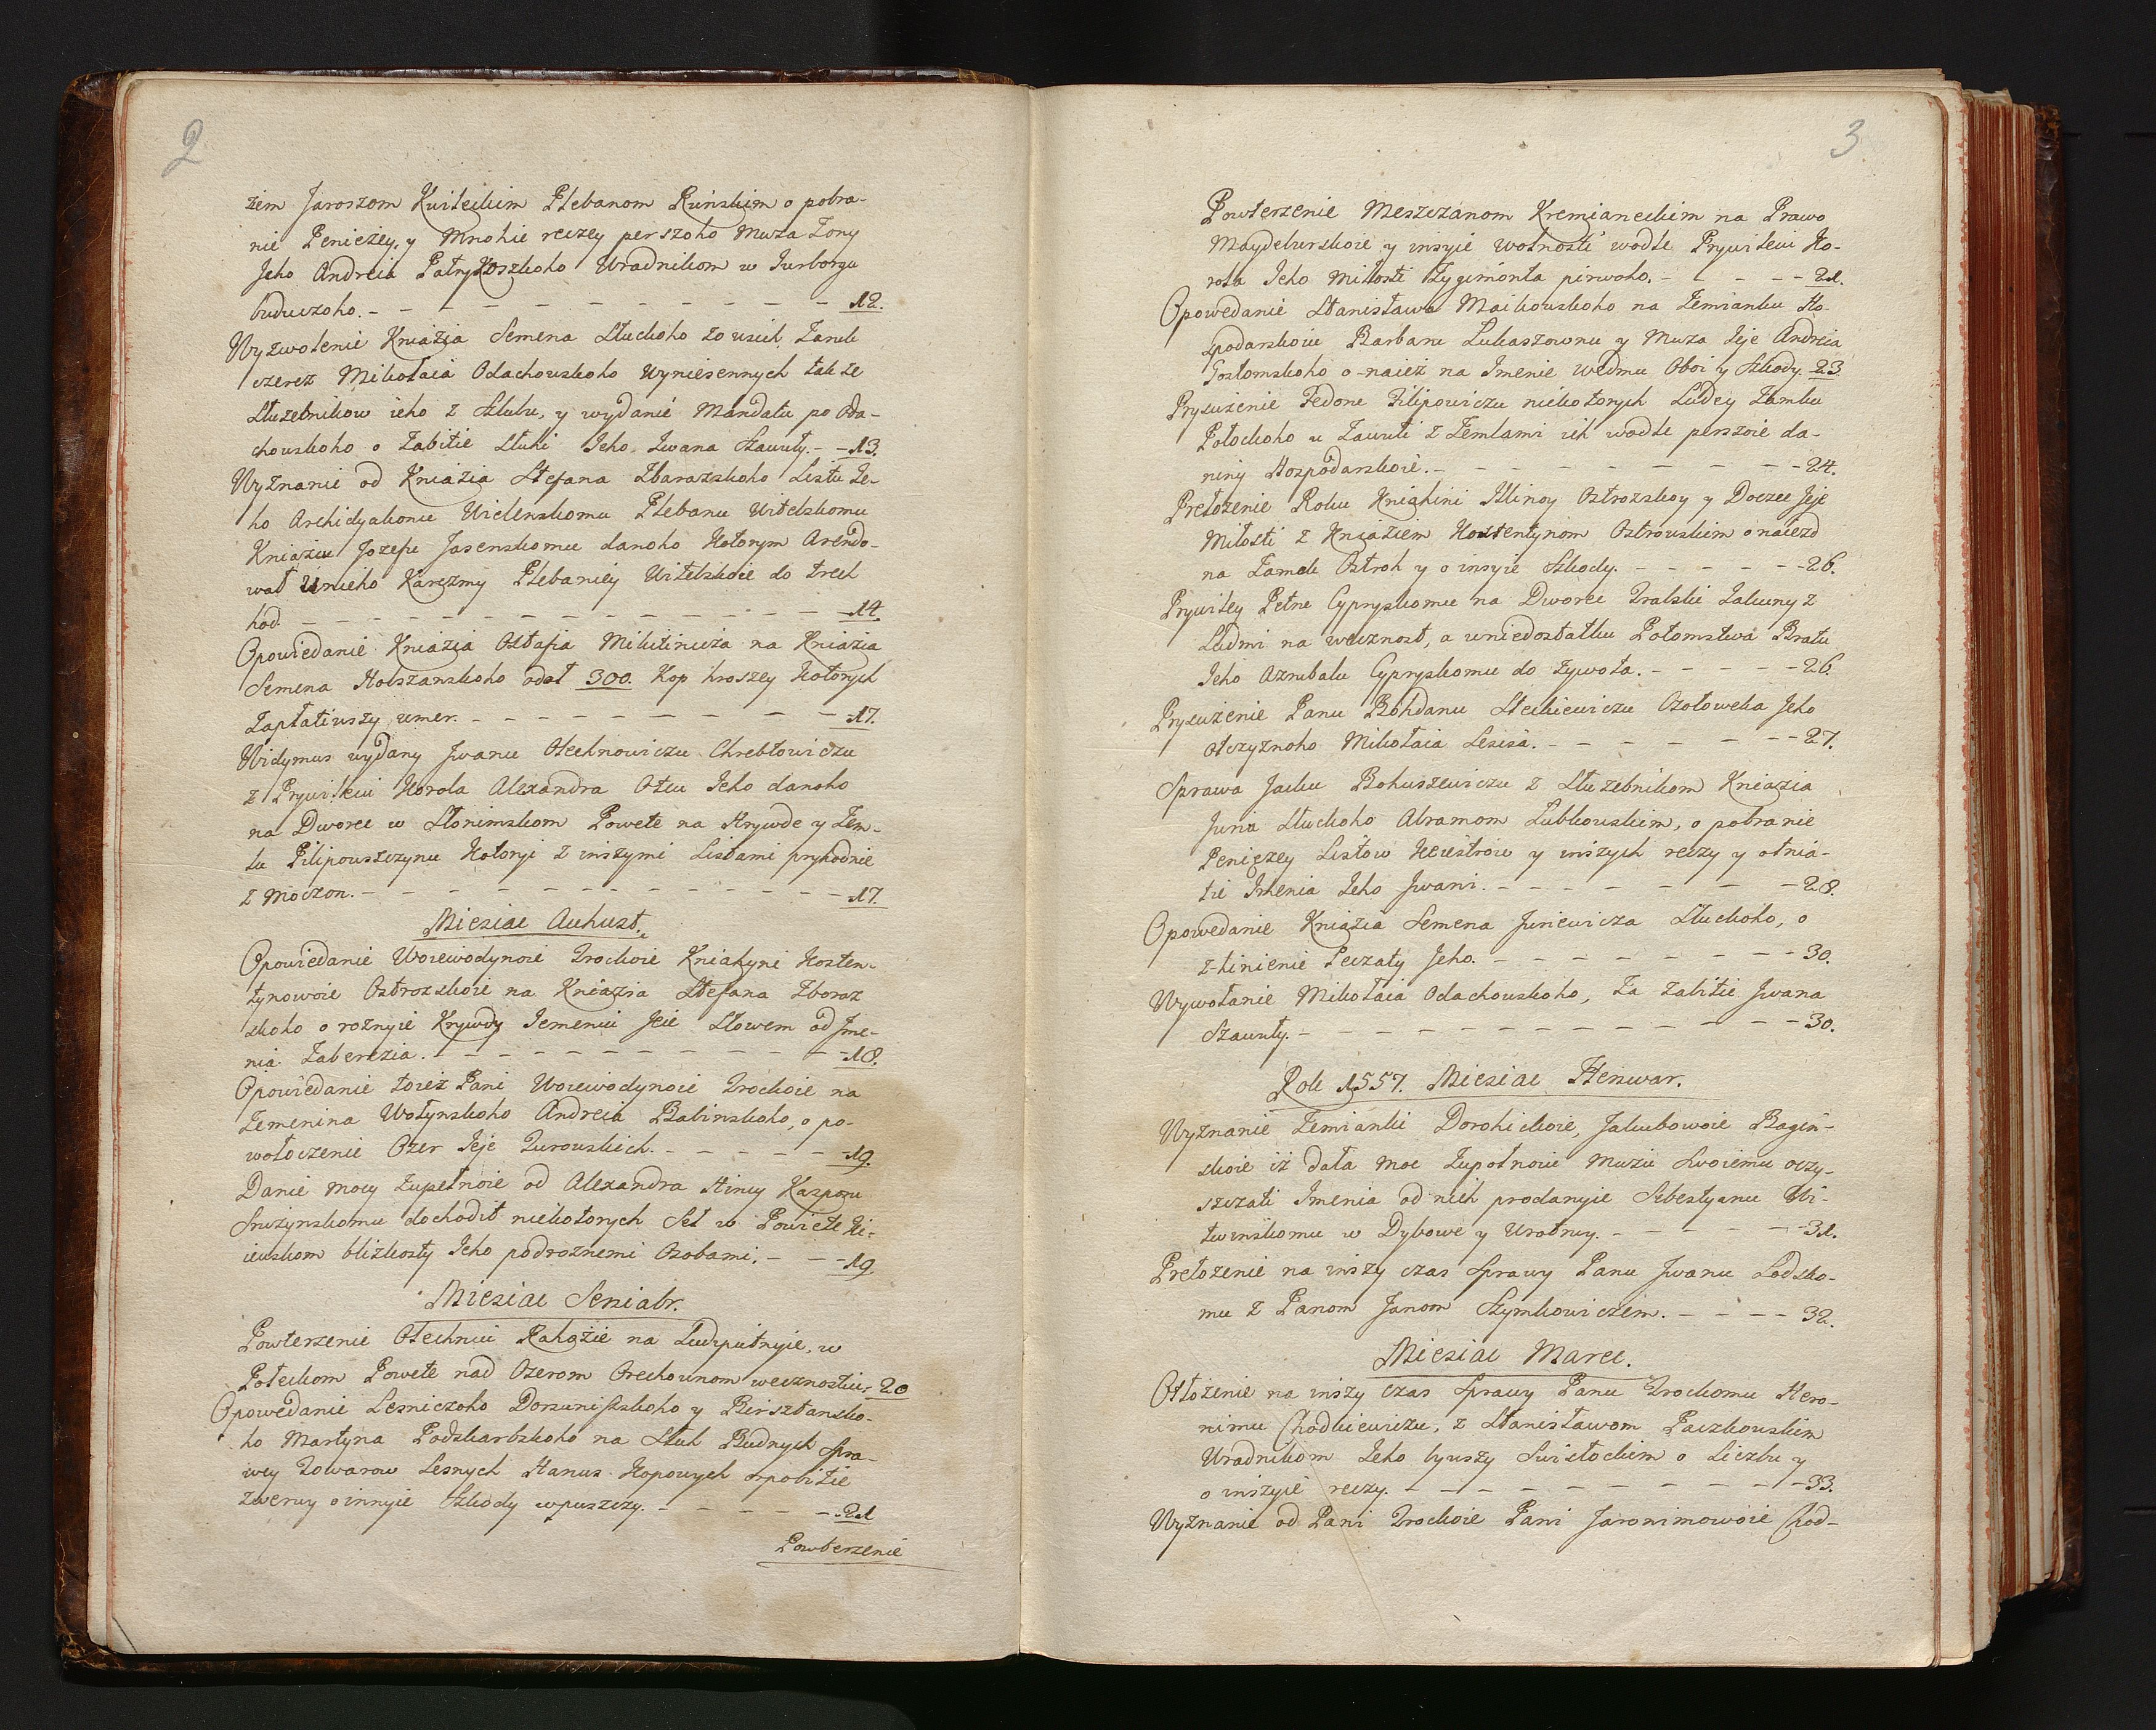 2
żem Jaroszom Kwileckim Plebanom Ruńskim o pobra-
nie Penieżey, y Mnohie reczey perszoho Muża Żony
Jeho Andreia Patrykoszkoho Uradnikom w Jurborgu
buduczoho. - - - - - - - - - - - - 12.
Wyzwolenie Kniazia Semena Słuckoho
czerez Mikołaia Odachouskoho wyniesennych także
Służebnikow ieho z Sklubu, y wydanie Mandatu po Oda-
chouskoho o Zabitie Sluhi Jeho Iwana Szauuły. - - 13.
Wyznanie od Kniazia Stefana Zbarazskoho Listu Je-
ho Archidyakonu Wilenskomu Plebanu Witebskomu
Kniaziu Jozefu Jasenskomu danoho Kotorym Arendo-
wał Unieho Karczmy Plebaniey Witebskoie do trech
hod. - - - - - - - - - - - - - - 14.
Opowiedanie Kniazia Ostafia Mikitinicza na Kniazia
Semena Holszanskoho odot 300. Kop hroszey Kotorych
Zapłatiuszy umer. - - - - - - - - - - 17.
Widymus wydany Jwanu Olechnowiczu Chrebtowiczu
z Prywileiu Korola Alexandra Otcu Jeho danoho
na Dworec w Słonimskom Powete na Krywde y Zem-
lu Pilipouszczynu Kotoryi z inszymi Listami pryhodnie
z Moczon. - - - - - - - - - - - - 17.
Miesiac Auhust.
Opowiedanie Woiewodynoie Trockoie Kniahyni Kosten-
tynowoie Ostrozskoie na Kniazia Stefana Zboraz
skoho o roznyie Krywdy Jemeniu Jeie Slowem od Jme-
nia Zaberezia. - - - - - - - - - - 18.
Opowiedanie toież Pani Woiewodynoie Trockoie na
Zemenina Wołynskoho Andreia Babinskoho, o po-
wołoczenie Ozer Jeje Turouskich. - - - - - 19.
Danie mocy zupełnoie od Alexandra Hincy Kaszporu
Snużynskomu dochodit niekotorych Seł w Powiete Ki-
ieuskom blizkosty Jeho podroznemi Osobami. - - - 19.
Miesiac Seniabr.
Powterzenie Olechniu Rahozie na Ludzi putnyie, w
Połockom Powete nad Ozerom Orechounom wecznostiu. 20
Opowedanie Lesniczoho Dorsuniszskoho y Birsztansko-
ho Martyna Podskarbskoho na Sluh Rudnych Spra-
wcy Towarow Lesnych Hanus Kopowych opobitie
zweruy o innyie Szkody w puszczy. - - - - - 21
Powterzenie
3.
Powterzenie Meszczanom Kremianeckim na Prawo
Maydeburskoie y insyie wolnosti wodle Prywileiu Ko-
rola Jeho Miłosti Zygimonta pirwoho. - - - - - 21.
Opowedanie Stanisława Maikouskoho na Zemianku Ho-
spodarskoiu Barbaru Lukaszownu y Muza Jeje Andreia
Gostomskoho o naiezd na Imenie Wedmu Oboi y Szkody. 23
Prysużenie Fedone Filipowiczu niekotorych Ludey Zamku
Połockoho u Zauuli z Zemlami ich wodle perszoie da-
niny Hospodarskoie. - - - - - - - - - - 24.
Prełożenie Roku Kniahini Illinoy Ostrozskoy y Doczce Jeje
Miłosti z Kniaziem Kostentynom Ostrouskim o naiezd
na Zamok Ostroh y o insyie Szkody. - - - - - - 26.
Prywiley Petru Cypryskomu na Dworec Tralski Zakuny z
Ludmi na wecznost, a w niedostatku Potomstwa Bratu
Jeho Azrubalu Cypryskomu do żywota. - - - - - - 26.
Prysużenie Panu Bohdanu Steckiewiczu Czołoweka Jeho
otczyznoho Mikołaia Lesisa. - - - - - - - 27.
Sprawa Jacku Bohuszewiczu z Służebnikom Kniazia
Juria Słuckoho Abramom Lubkouskim, o pobranie
Peniezey Listow Reiestrow y inszych reczy y otnia-
tie Imenia Jeho Jwani. - - - - - - - - 28.
Opowedanie Kniazia Semena Juriewicza Słuckoho, o
z-hinienie Peczaty Jeho. - - - - - - - - - 30.
Wywołanie Mikołaia Odachouskoho, Za Zabitie Jwana
Szauuły. - - - - - - - - - - - - - 30.
Rok 1557. Miesiac Henwar.
Wyznanie Zemianki Dorohickoie, Jakubowoie Bagiń-
skoie iż dała moc Zupołnoie Mużu Swoiemu oczy-
szczati Imenia od nich prodanyie Sebestyanu Wi-
twinskomu w Dybowe y Urotruy. - - - - - - 31.
Prełożenie na inszy czas Sprawy Panu Jwanu Ladsko-
mu z Panom Janom Szymkowiczem. - - - - 32.
Miesiac Marec.
Otłożenie na inszy czas Sprawy Panu Trockomu Hero-
nimu Chodkiewiczu, z Stanisławom Paczkouskim
Uradnikom Jeho byuszy Swisłockim o Liczbu y
o inszyie reczy. - - - - - - - - - - 33.
Wyznanie od Pani Trockoie Pani Jaronimowoie Chod-